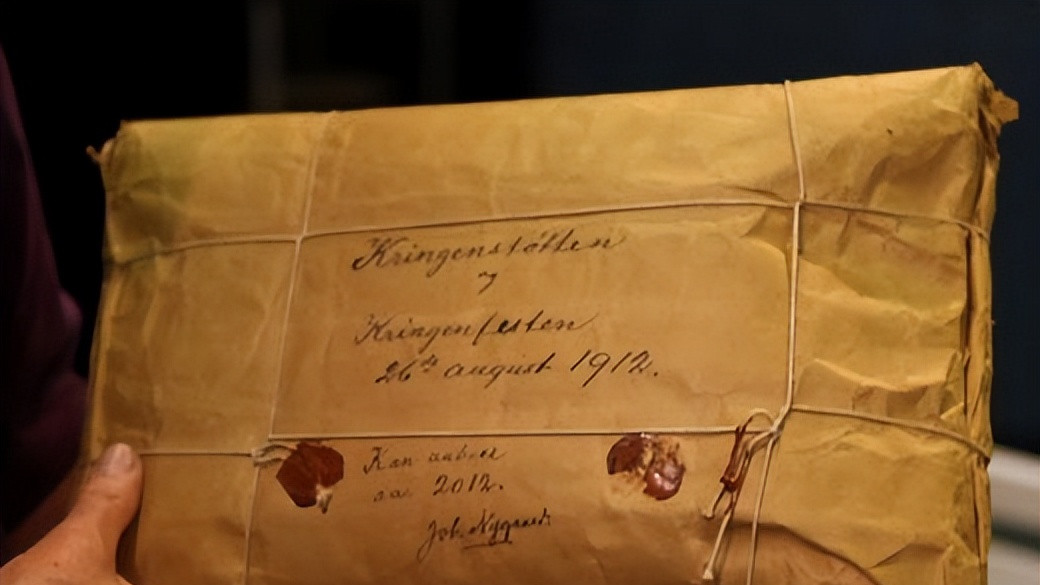 Kringenstøtten
og
Kringenfesten
26de august 1912.
Kan aabnes
aar 2012.
Joh. Nygaard